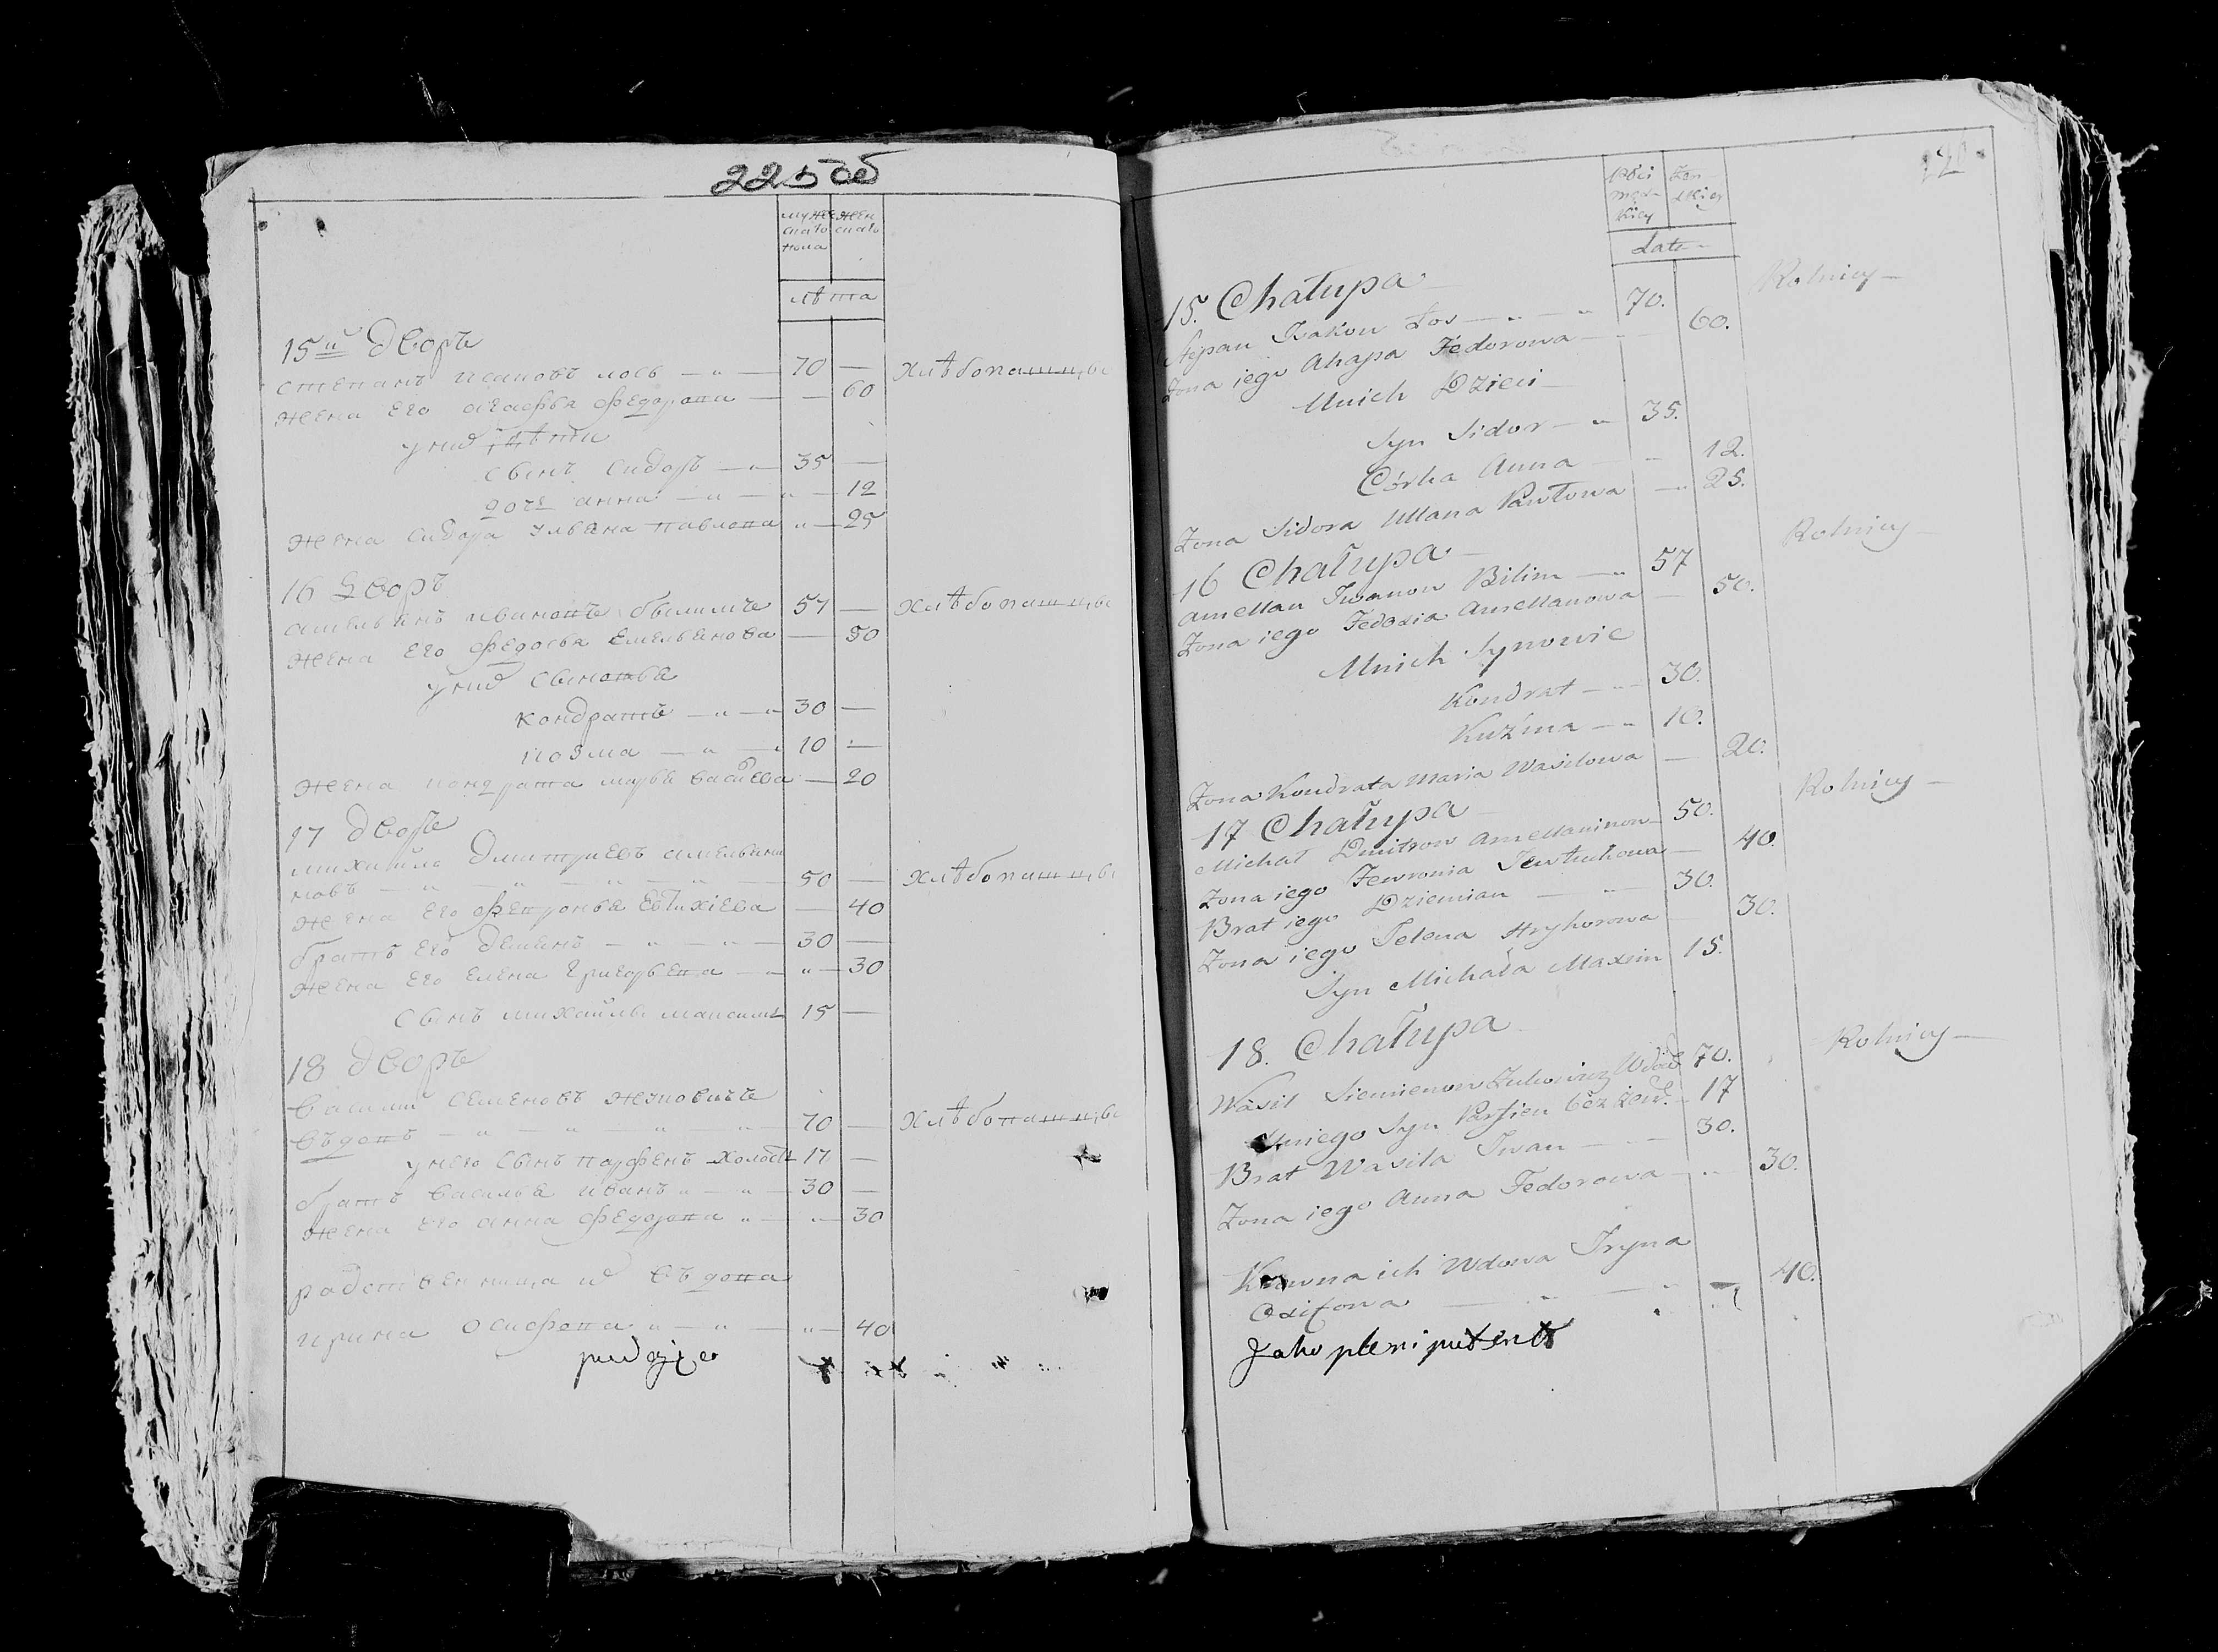 225об
мужескаго пола
женскаго
лѣта
15й дворъ
степанъ исаковъ лось — " — 70 — хлѣбопашцы
жена Его агафья федорова — — 60
у них дѣти
сынъ сидоръ — " — 35 —
дочь анна — " — " — 12
жена сидора ульяна павлова " — 25
16 дворъ
амельянъ ивановъ былимъ 57 — хлѣбопашцы
жена Его федосья Емельянова — 50
у них сыновья
кондратъ — " — " 30 —
козма — " — 10 —
жена кондрата марья васильева — 20
17 дворъ
михайло дмитриевъ амельяни
новъ — " — " — " — " — 50 — хлѣбопашцы
жена Его февронья Евтихіева — 40
братъ Его демьянъ — " — " — 30 —
жена Его Елена григорьева — " — 30
сынъ михайлы максимъ 15 —
18 дворъ
василий семеновъ
въдовъ — " — " — " — " — 70 — хлѣбопашцы
у него сынъ парфенъ холостъ 17 —
братъ василья иванъ " — " — 30 —
жена Его анна федорова " — " — 30
родственница их въдова
ирина осифова " — " — " — 40
płci męzkiey
żeńskiey
Lata
15. Chałupa — Rolnicy —
Stepan Isakow Łos — " — " 70.
Żona iego Ahapa Fedorowa — 60.
U nich Dzieci
Syn Sidor — " 35.
Córka Anna — 12.
Żona Sidora Ullana Pawłowa — " 25.
16 Chałupa — Rolnicy —
Amellan Iwanow Bilim — " 57
Żona iego Fedosia Amellanowa — 50.
U nich Synowie
Kondrat — " — 30.
Kuźma — " 10.
Żona Kondrata Maria Wasilowa — 20.
17 Chałupa — Rolnicy —
Michał Dmitrow Amellaninow — 50.
Żona iego Fewronia Jewtuchowa — 40.
Brat iego Dziemian — " — 30.
Żona iego Jelena Hryhorowa 30.
Syn Michała Maxim 15.
18. Chałupa — Rolnicy —
Wasil Siemienow Żukowicz Wdów 70.
U niego Syn Parfien bez żen. — 17
Brat Wasila Iwan — " — 30.
Żona iego Anna Fedorowa — " 30.
Krewna ich Wdowa Iryna
Osifowa — " — " — 40.
Jako plenipotent